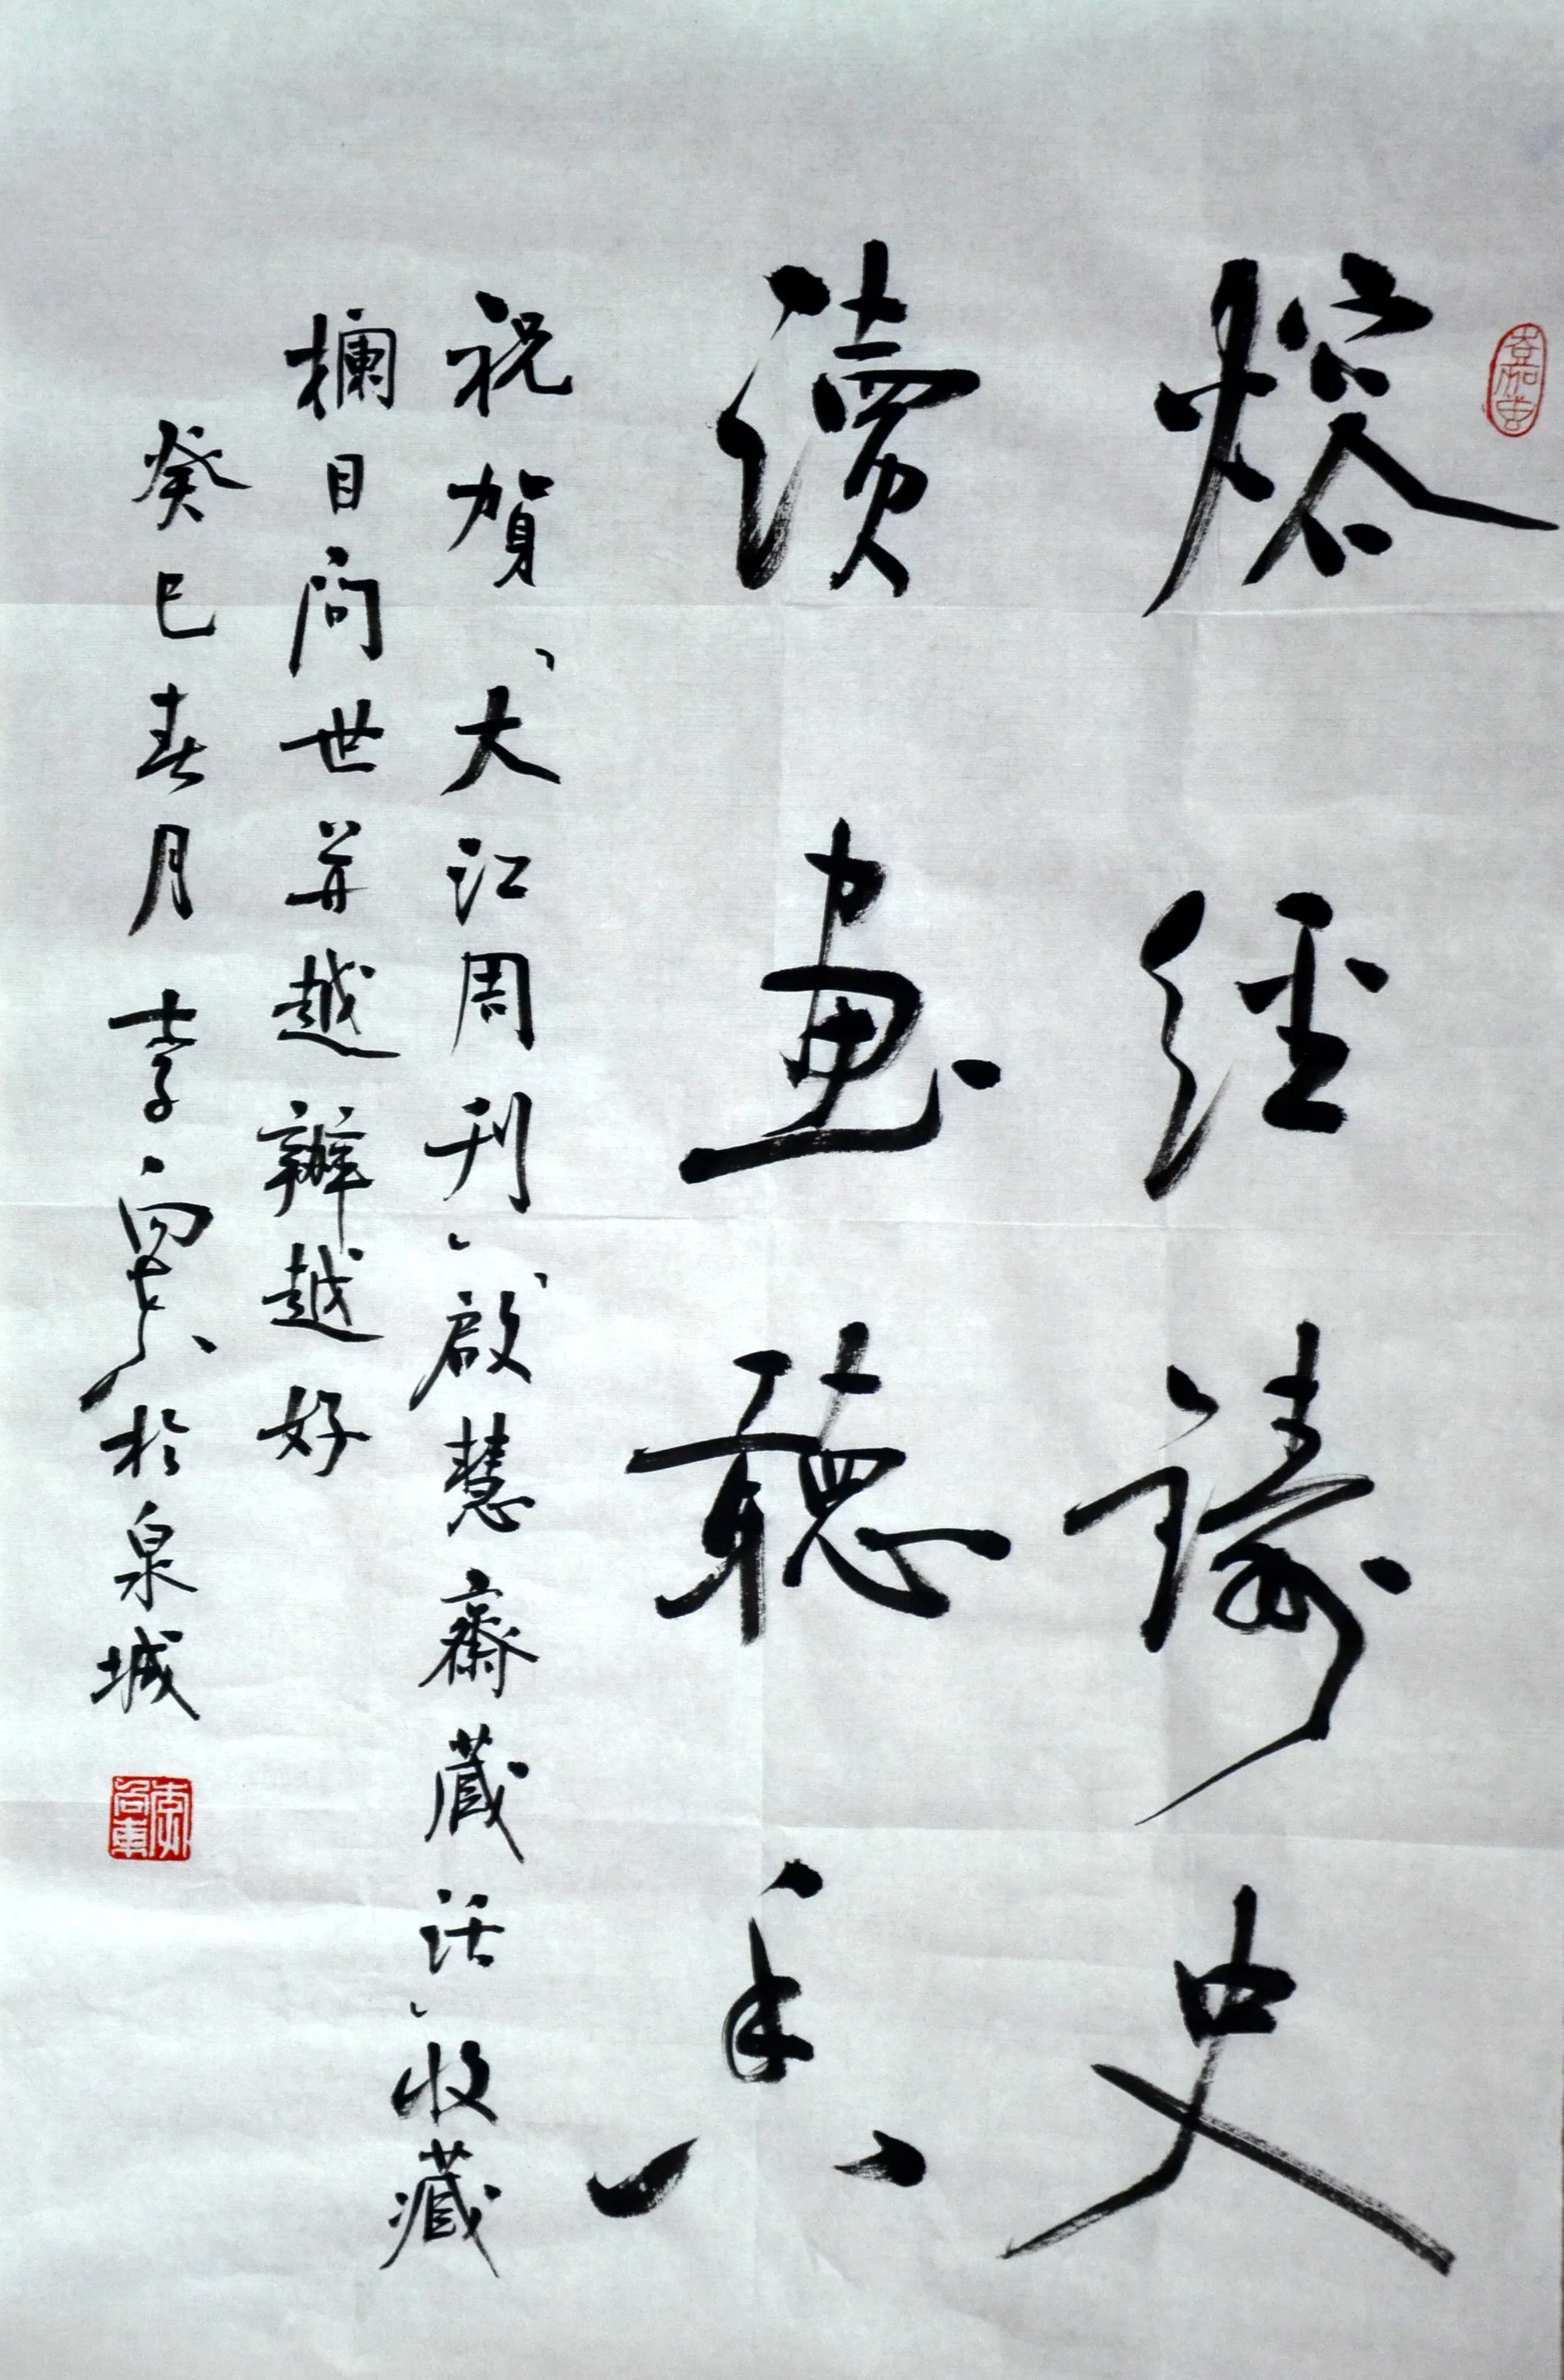 熔經鑄史
讀畫聽香
祝賀「大江周刊」「啟慧齋藏话」收藏
欄目问世并越辦越好
癸巳春月李於泉城